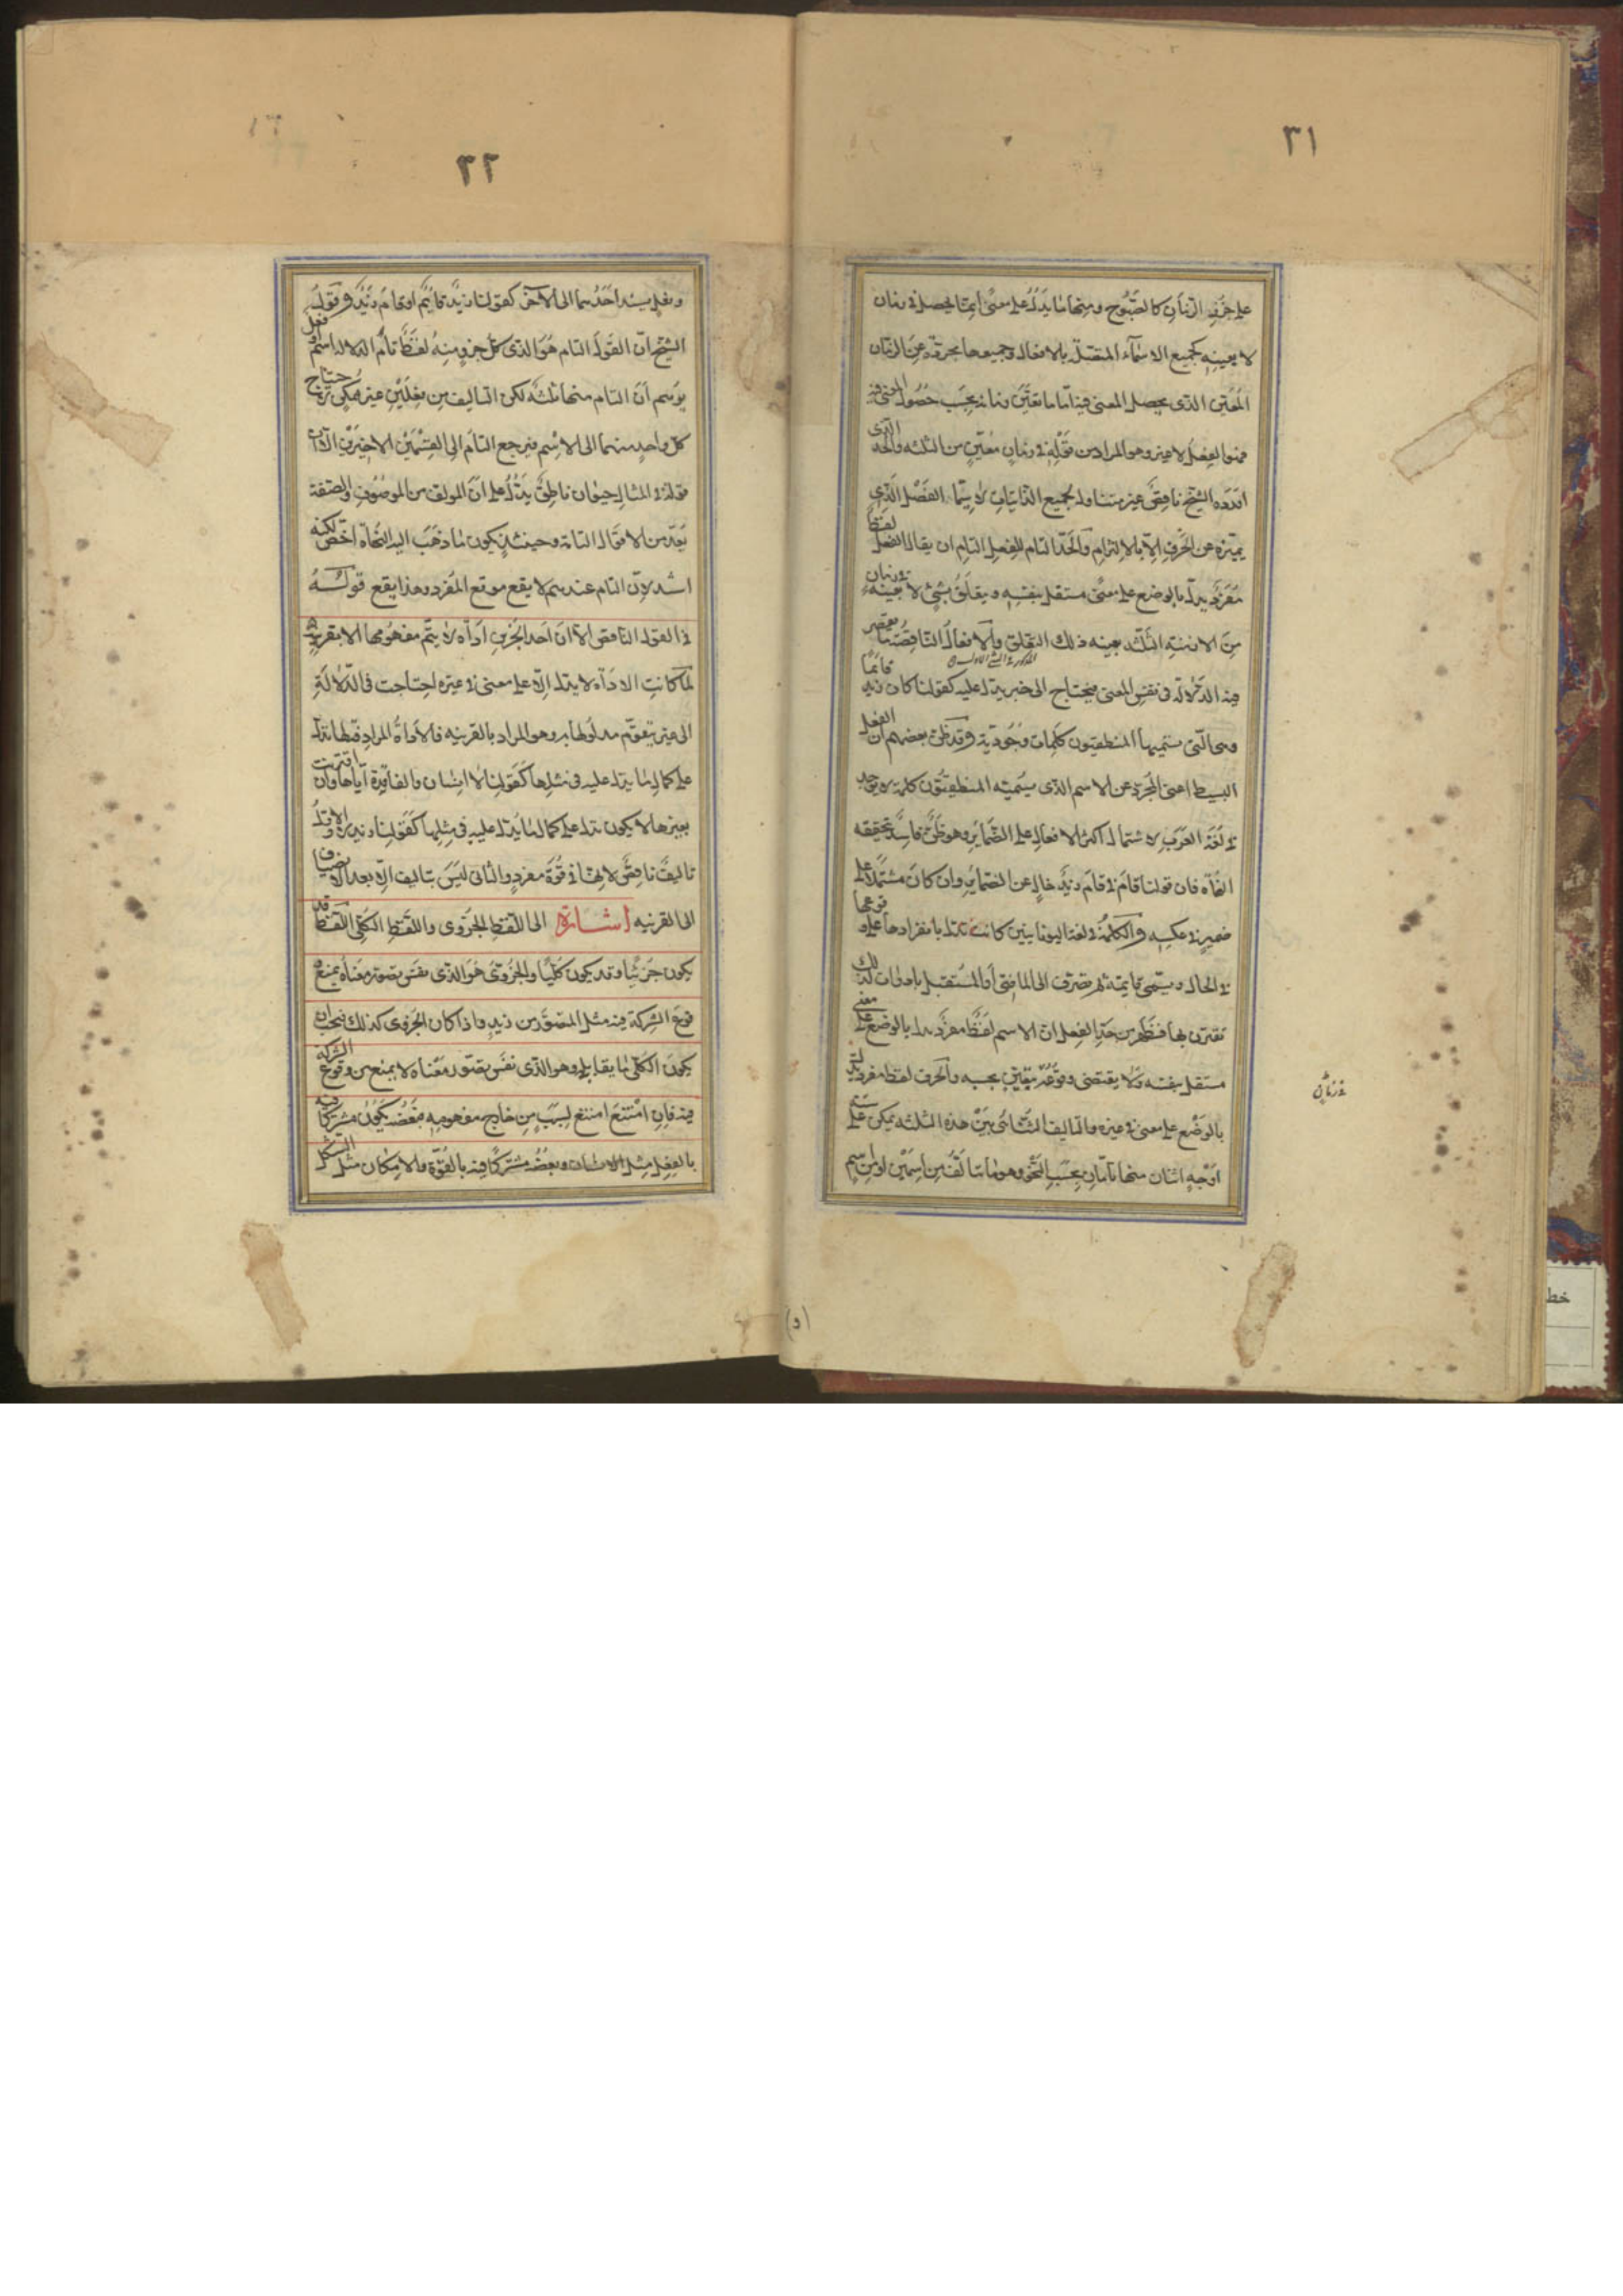 ٣١
على جزء الزمان كالصَّبُوح ومنها ما يَدُلُّ على معنًى انما يحصل في زمان
لا بعينه كجميع الاسمآء المتصلة بالافعال وجميعها مجردة عن الزمان
المُعَيَّن الذى يحصل المعنى فيه اما ما تعيَّن زمانه بحَسَب حُصُول المعنى فيه
فهو الفِعل لا غير وهو المراد من قَوْلِهِ في زمانٍ معيَّنٍ من الثلثه والحد الذى
اورَدَه الشيخ ناقصٌ غير متناول لجميع الذاتيات لا سيَّما الفَصْل الَّذي
يميّزه عن الحَرْفِ الّا بالالتزام والحَدّ التام للفِعلِ التام ان يقال الفعل لفظٌ
مُفرَدٌ يدلّ بالوضع على معنًى مستقل بنفسِهِ ويتعلَّقُ بشَىْءٍ لا بعينه في زمان
مِنَ الازمنةِ الثلثه بعينه ذلك التعلق والافعالُ الناقصة ما تقصر
المذكورة
فيه الدَلالة في نفس المعنى فيحتاج الى خبر يدل عليه كقولنا كان زيد قائمًا
وهى الّتى يسمّيها المنطقيّون كلمات وجُوديّة وقد ظَنَّ بعضهم ان الفعل
البسيط اعنى المجرّد عن الاسم الذى يسمّيه المنطقيّون كلمة لا يوجد
في لغة العرب لاشتمال اكثر الافعال على الضّمائرِ وهو ظنٌّ فاسدٌ تحققه
النُّحاه فان قولنا قام في قام زيدٌ خالٍ عن الضمائر وان كان مشتملًا على
ضميرٍ في عكسِهِ والكلمةُ في لغة اليونانيين كانت تدل بانفرادها على وقوعها
في الحال ويسمّى قايمة ثم تصرف الى الماضى أو المُستقبل بادوات لذلك
تقترن بها فظهر من حدِّ الفعل ان الاسم لفظٌ مفردٌ يدل بالوضع على معنى
مستقل بنفسه ولا يقتضى وقوعُه بتعيّن بحسبه والحرف لفظ مفرد يدل
في زمان
بالوَضْع على معنى في غيره والتاليف الثنائى بَيْن هذه الثلثه يمكن على ستة
اوْجهٍ اثنان منها تامّان بحَسَب النَّحو وهو ما يتالّف من اسمين او من اسم
٣٢
وفعل يسند احَدُهما الى الآخر كقولنا زيدٌ قائمٌ او قامَ زيدٌ وقولُ
الشيخ انّ القولَ التام هُوَ الذى كلّ جزءٍ منهُ لفظٌ تامُّ الدلاله اسم او فعل
يوهم انّ التام منها ثلثه لكن التاليف من فِعلَيْنِ غير ممكن لاحتياج
كل واحدٍ منهما الى الاسم فيرجع التام الى القِسْمَيْن الاخيرين الا ان
قوله في المثال حيوان ناطقٌ يدُلُّ على انّ المولف من الموصُوف والصفة
يُعدّ من الاقوال التامة وحينئذٍ يكون ما ذهَبَ اليه النُّحاة اخصّ لكنه
اشد لانّ التام عندهم لا يقع موقع المُفرد وهذا يقع قولهُ
في القول الناقص الّا انّ احد الجُزْءين اداه لا يتمّ مفهومها الا بقرينه
لمّا كانت الاداة لا يدل الّا على معنى في غيره احتاجت في الدّلالةِ
الى غيرٍ يتقوّم مدلولها به وهو المراد بالقرينه فالاداة المراد قطها تدل
على كمال ما يدل عليه في مثلها كقولنا لا انسان والفايدة ايّاها وان اقترنت
بغيرها لا يكون تدل على كمال ما يدل عليه في مثلها كقولنا زيد لا والاول
تاليفٌ ناقصٌ لانها في قُوّة مفردٍ والثانى ليسَ بتاليف الّا بعد الانضياف
الى القرنيه اشارة الى اللّفظِ الجزوى واللّفظِ الكلّى اللّفظ قد
يكون جزئيًّا وقد يكون كلّيًّا والجزوىّ هُوَ الذى نفس تصوّر معناه يمنع و
قوعَ الشركة فيه مثل المتصَوَّر من زيدٍ واذا كان الجزوى كذلك فيجب ان
يكونَ الكلّى ما يقابله وهو الذى نفسُ تصوّر معْناه لا يمنع من وقوع الشركة
فيه فانِ امْتنعَ امتنع لسَببٍ من خارج مفهومه فبَعضُه يكُونُ مشتركًا فيه
بالفعل مثل الانسان وبعضُه مشتركًا فيه بالقُوّة والامكان مثل الشكل
(د)
خط